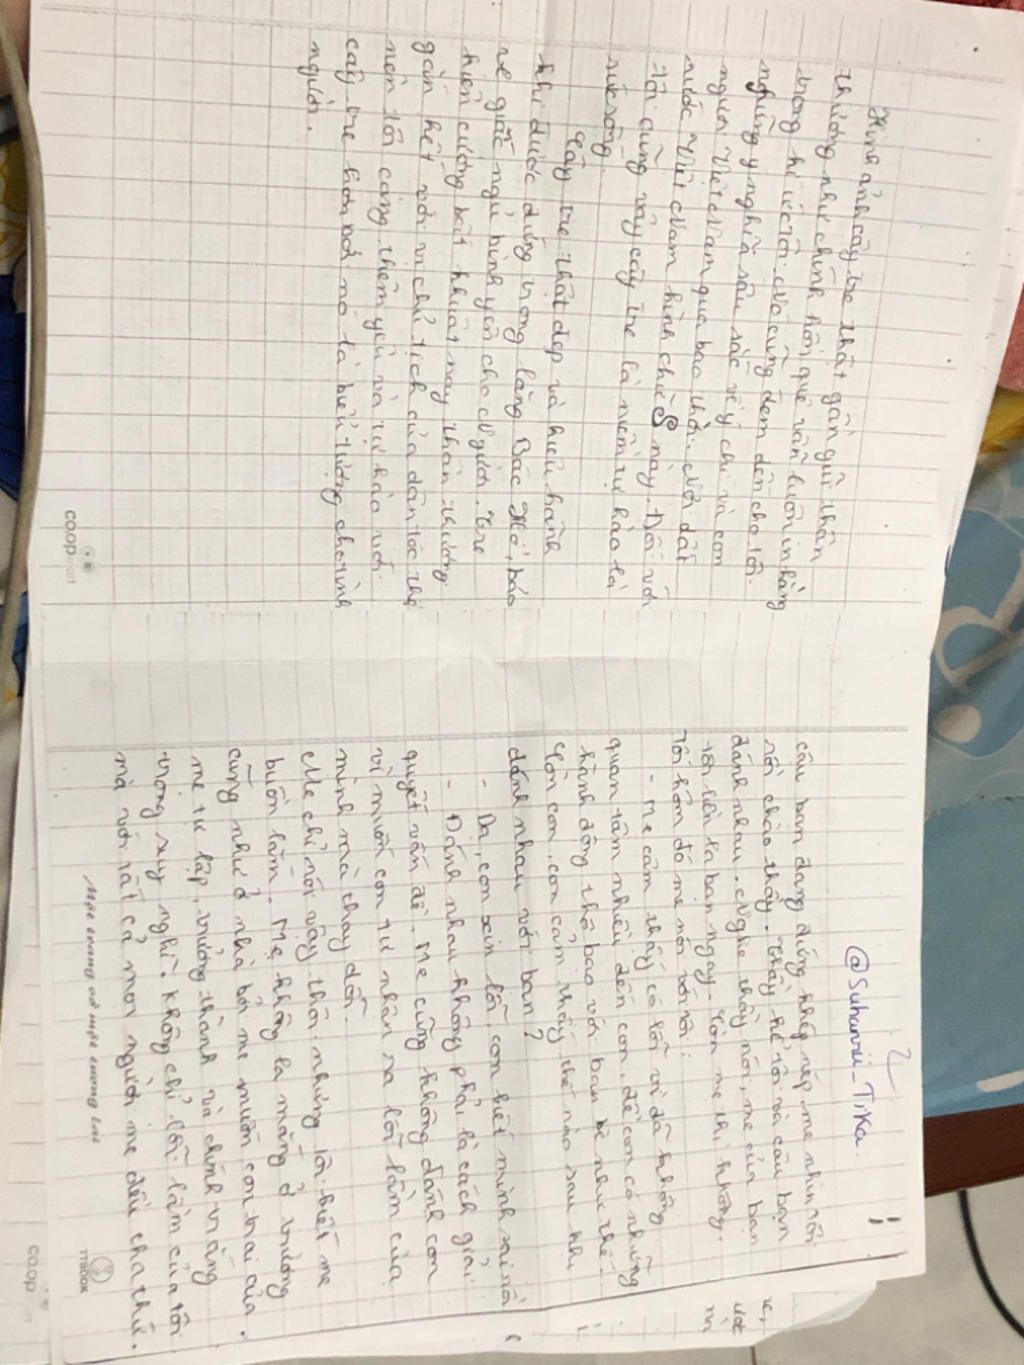 Hình ảnh cây tre thật gần gũi thân
thương như chính hồn quê vẫn luôn in hằng
trong kí ức tôi. Nó cũng đem đến cho tôi
những ý nghĩa sâu sắc về ý chí và con
người Việt Nam qua bao thời. Với đất
nước Việt Nam hình chữ S này. Đối với
tôi cũng vậy cây tre là niềm tự hào là
sức sống.
Cây tre thật đẹp và hiên hành
khi được đứng trong lăng Bác Hồ, bảo
vệ giấc ngủ bình yên cho Người. Tre
kiên cường bất khuất nay thân thương
gắn kết với vị chủ tịch của dân tộc thì
nên tôi càng thêm yêu và tự hào với
cây tre hơn bởi nó là biểu tượng cho tình
người.
coopmart
@Suhanii_TiKa
cậu bạn đang đứng khép nép mẹ nhìn tôi
rồi chào thầy. Thầy kể tôi và cậu bạn
đánh nhau. Nghe thầy nói, mẹ của bạn
tôi liền la bạn ngay. Còn mẹ thì không.
Tối hôm đó mẹ nói với tôi:
- Mẹ cảm thấy có lỗi vì đã không
quan tâm nhiều đến con, để con có những
hành động thô bạo với bạn bè như thế.
Còn con, con cảm thấy thế nào sau khi
đánh nhau với bạn?
- Dạ, con xin lỗi, con biết mình sai rồi
- Đánh nhau không phải là cách giải
quyết vấn đề. Mẹ cũng không đánh con
vì muốn con tự nhận ra lỗi lầm của
mình mà thay đổi.
Mẹ chỉ nói vậy thôi nhưng tôi biết mẹ
buồn lắm. Mẹ không la mắng ở trường
cũng như ở nhà bởi mẹ muốn con trai của
mẹ tự lập, trưởng thành và chính vàng
trong suy nghĩ. Không chỉ lỗi lầm của tôi
mà với tất cả mọi người mẹ đều tha thứ.
mbook
coopmart